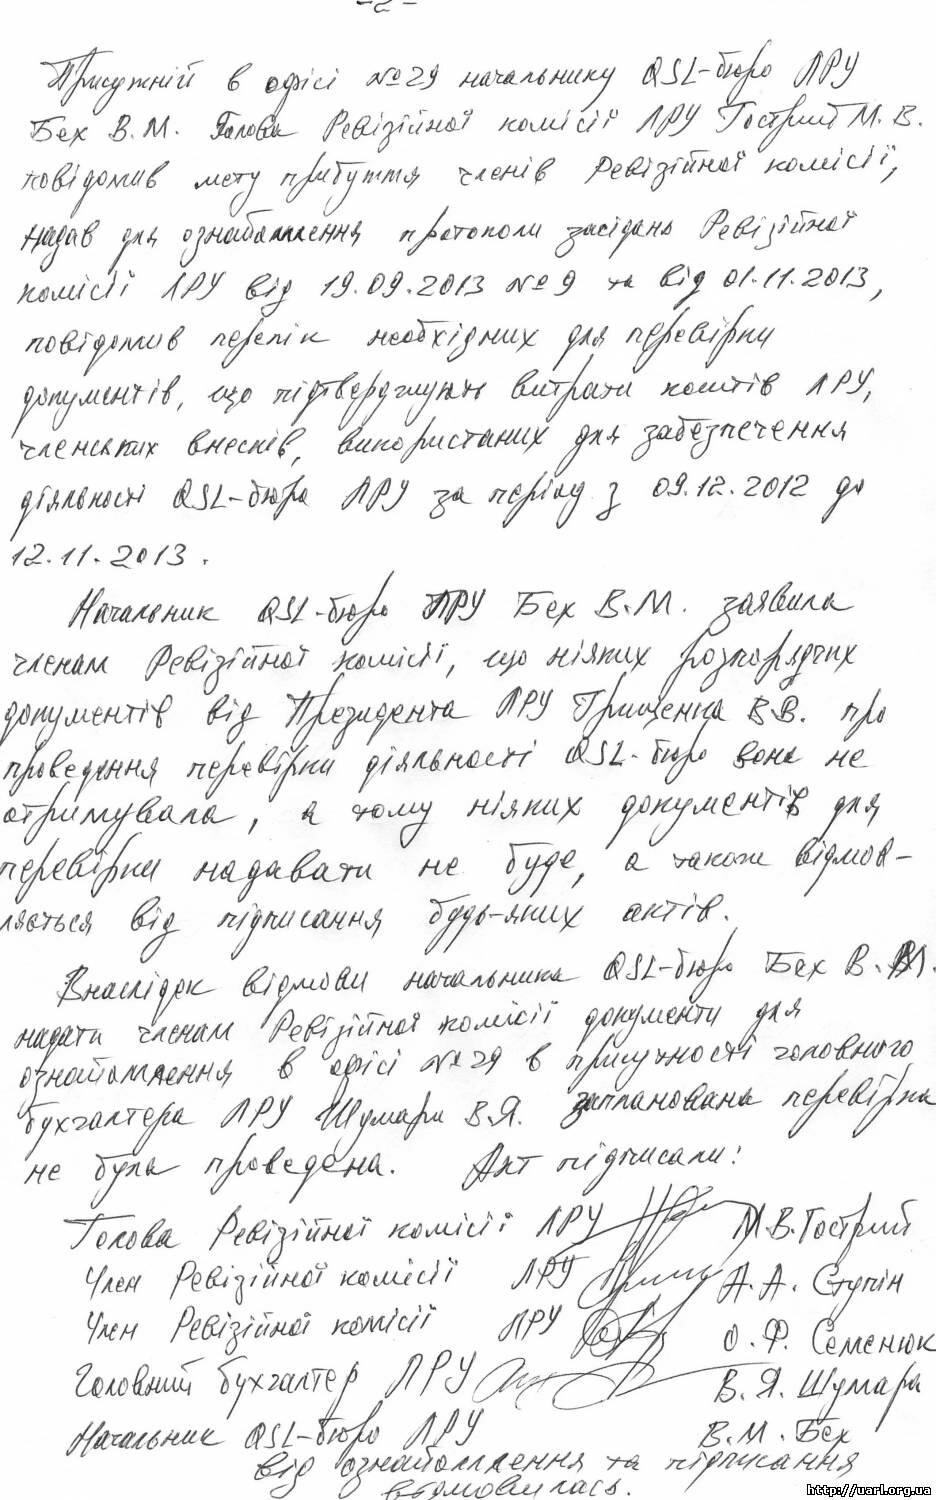 -2-
Присутній в офісі №29 начальнику QSL-бюро ЛРУ
Бех В.М. Голова Ревізійної комісії ЛРУ Гострий М.В.
повідомив мету прибуття членів Ревізійної комісії,
надав для ознайомлення протоколи засідань Ревізійної
комісії ЛРУ від 19.09.2013 №9 та від 01.11.2013,
повідомив перелік необхідних для перевірки
документів, що підтверджують витрати коштів ЛРУ,
членських внесків, використаних для забезпечення
діяльності QSL-бюро ЛРУ за період з 09.12.2012 до
12.11.2013.
Начальник QSL-бюро ЛРУ Бех В.М. заявила
членам Ревізійної комісії, що ніяких розпорядчих
документів від Президента ЛРУ Грищенка В.В. про
проведення перевірки діяльності QSL-бюро вона не
отримувала, а тому ніяких документів для
перевірки надавати не буде, а також відмов-
ляється від підписання будь-яких актів.
Внаслідок відмови начальника QSL-бюро Бех В.М.
надати членам Ревізійної комісії документи для
ознайомлення в офісі №29 в присутності головного
бухгалтера ЛРУ Шумари В.Я. запланована перевірка
не була проведена. Акт підписали:
Голова Ревізійної комісії ЛРУ М.В.Гострий
Член Ревізійної комісії ЛРУ А.А. Ступін
Член Ревізійної комісії ЛРУ О.Ф. Семенюк
Головний бухгалтер ЛРУ В.Я. Шумара
Начальник QSL-бюро ЛРУ В.М. Бех
від ознайомлення та підписання
відмовилась.
http://uarl.org.ua